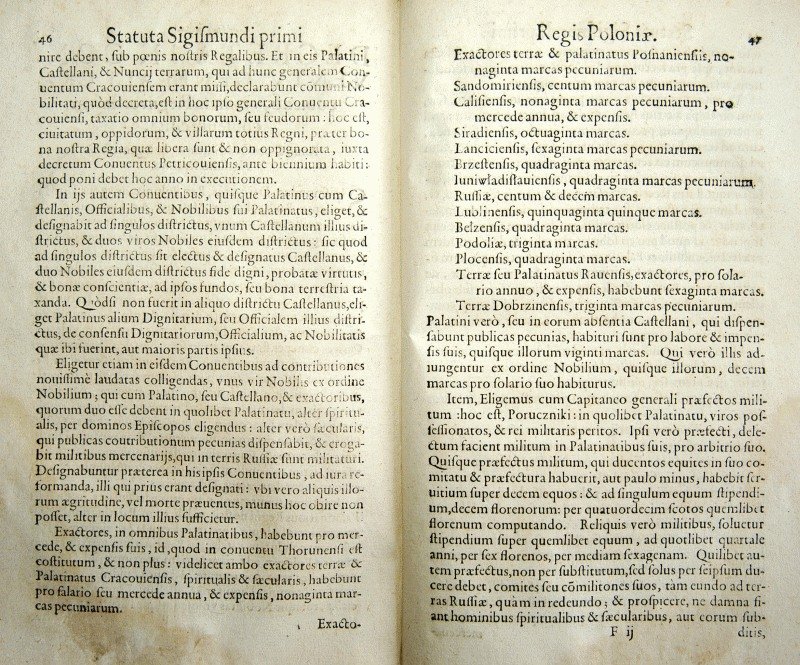 46 Statuta Sigiſmundi primi
nire debent, ſub pœnis noſtris Regalibus. Et in eis Palatini,
Caſtellani, & Nuncij terrarum, qui ad hunc generalem Con-
uentum Cracouienſem erant miſſi, declarabunt comuni No-
bilitati, quòd decreta, eſt in hoc ipſo generali Conuentu Cra-
couienſi, taxatio omnium bonorum, ſeu feudorum : hoc eſt,
ciuitatum, oppidorum, & villarum totius Regni, præter bo-
na noſtra Regia, quæ libera ſunt & non oppignorata, iuxta
decretum Conuentus Petricouienſis, ante biennium habiti:
quod poni debet hoc anno in executionem.
In ijs autem Conuentibus, quiſque Palatinus cum Ca-
ſtellanis, Officialibus, & Nobilibus ſui Palatinatus, eliget, &
deſignabit ad ſingulos diſtrictus, vnum Caſtellanum illius di-
ſtrictus, & duos viros Nobiles eiuſdem diſtrictus : ſic quod
ad ſingulos diſtrictus ſit electus & deſignatus Caſtellanus, &
duo Nobiles eiuſdem diſtrictus fide digni, probatæ virtutis,
& bonæ conſcientiæ, ad ipſos fundos, ſeu bona terreſtria ta-
xanda. Quòdſi non fuerit in aliquo diſtrictu Caſtellanus, eli-
get Palatinus alium Dignitarium, ſeu Officialem illius diſtri-
ctus, de conſenſu Dignitariorum, Officialium, ac Nobilitatis
quæ ibi fuerint, aut maioris partis ipſius.
Eligetur etiam in eiſdem Conuentibus ad contributiones
nouiſſimè laudatas colligendas, vnus vir Nobilis ex ordine
Nobilium ; qui cum Palatino, ſeu Caſtellano, & exactoribus,
quorum duo eſſe debent in quolibet Palatinatu, alter ſpiritu-
alis, per dominos Epiſcopos eligendus : alter verò ſæcularis,
qui publicas coutributionum pecunias diſpenſabit, & eroga-
bit militibus mercenarijs, qui in terris Ruſſiæ ſunt militaturi.
Deſignabuntur præterea in his ipſis Conuentibus, ad iura re-
formanda, illi qui prius erant deſignati : vbi vero aliquis illo-
rum ægritudine, vel morte præuentus, munus hoc obire non
poſſet, alter in locum illius ſufficietur.
Exactores, in omnibus Palatinatibus, habebunt pro mer-
cede, & expenſis ſuis, id, quod in conuentu Thorunenſi eſt
coſtitutum, & non plus : videlicet ambo exactores terræ &
Palatinatus Cracouienſis, ſpiritualis & ſæcularis, habebunt
pro ſalario ſeu mercede annua, & expenſis, nonaginta mar-
cas pecuniarum.
Exacto-
Regis Poloniæ. 47
Exactores terræ & palatinatus Poſnanienſiis, no-
naginta marcas pecuniarum.
Sandomirienſis, centum marcas pecuniarum.
Caliſienſis, nonaginta marcas pecuniarum, pro
mercede annua, & expenſis.
Siradienſis, octuaginta marcas.
Lancicienſis, ſexaginta marcas pecuniarum.
Brzeſtenſis, quadraginta marcas.
Iuniwladiſlauienſis, quadraginta marcas pecuniarum.
Ruſſiæ, centum & decem marcas.
Lublinenſis, quinquaginta quinque marcas.
Belzenſis, quadraginta marcas.
Podoliæ, triginta marcas.
Plocenſis, quadraginta marcas.
Terræ ſeu Palatinatus Rauenſis, exactores, pro ſola-
rio annuo, & expenſis, habebunt ſexaginta marcas.
Terræ Dobrzinenſis, triginta marcas pecuniarum.
Palatini verò, ſeu in eorum abſentia Caſtellani, qui diſpen-
ſabunt publicas pecunias, habituri ſunt pro labore & impen-
ſis ſuis, quiſque illorum viginti marcas. Qui verò illis ad-
iungentur ex ordine Nobilium, quiſque illorum, decem
marcas pro ſolario ſuo habiturus.
Item, Eligemus cum Capitaneo generali præfectos mili-
tum : hoc eſt, Poruczniki : in quolibet Palatinatu, viros poſ-
ſeſſionatos, & rei militaris peritos. Ipſi verò præfecti, dele-
ctum facient militum in Palatinatibus ſuis, pro arbitrio ſuo.
Quiſque præfectus militum, qui ducentos equites in ſuo co-
mitatu & præfectura habuerit, aut paulo minus, habebit ſer-
uitium ſuper decem equos : & ad ſingulum equum ſtipendi-
um, decem florenorum: per quatuordecim ſcotos quemlibet
florenum computando. Reliquis verò militibus, ſoluetur
ſtipendium ſuper quemlibet equum, ad quotlibet quartale
anni, per ſex florenos, per mediam ſexagenam. Quilibet au-
tem præfectus, non per ſubſtitutum, ſed ſolus per ſeipſum du-
cere debet, comites ſeu cõmilitones ſuos, tam eundo ad ter-
ras Ruſſiæ, quàm in redeundo ; & proſpicere, ne damna fi-
ant hominibus ſpiritualibus & ſæcularibus, aut eorum ſub-
F ij ditis,